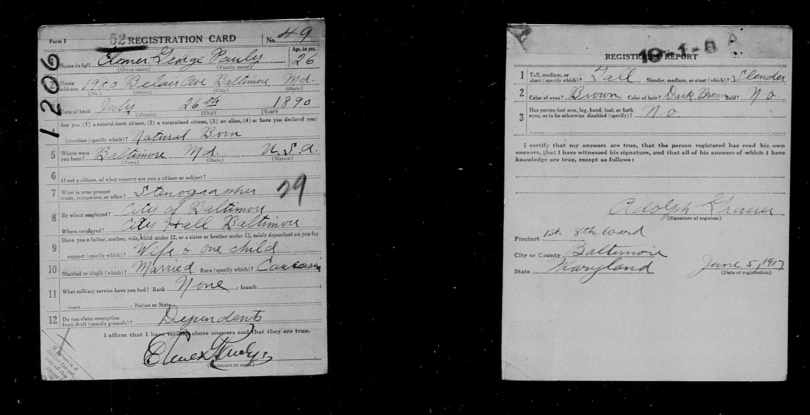 Form 1
52 REGISTRATION CARD No. 49
1206
Elmer George Pauly
Age, in yrs. 26
Name in full
(Given name) (Family name)
Home address 1900 Belair Ave Baltimore Md.
Date of birth July 26th 1890
Are you (1) a natural-born citizen, (2) a naturalized citizen, (3) an alien, (4) or have you declared your
intention (specify which)? Natural Born
5 Where were you born? Baltimore Md. U.S.A.
6 If not a citizen, of what country are you a citizen or subject?
7 What is your present trade, occupation, or office? Stenographer
29
8 By whom employed? City of Baltimore
Where employed? City Hall Baltimore
9 Have you a father, mother, wife, child under 12, or a sister or brother under 12, solely dependent on you for
support (specify which)? Wife & one child
10 Married or single (which)? Married Race (specify which)? Caucasian
11 What military service have you had? Rank None ; branch
years ; Nation or State
12 Do you claim exemption from draft (specify grounds)? Dependents
I affirm that I have verified above answers and that they are true.
REGISTRAR'S REPORT
1 Tall, medium, or short (specify which)? Tall Slender, medium, or stout (which)? Slender
2 Color of eyes? Brown Color of hair? Dark Brown Bald? No
3 Has person lost arm, leg, hand, foot, or both eyes, or is he otherwise disabled (specify)? No
I certify that my answers are true, that the person registered has read his own
answers, that I have witnessed his signature, and that all of his answers of which I have
knowledge are true, except as follows:
Adolph
(Signature of registrar)
Precinct 1st 8th Ward
City or County Baltimore
State Maryland June 5, 1917
(Date of registration)